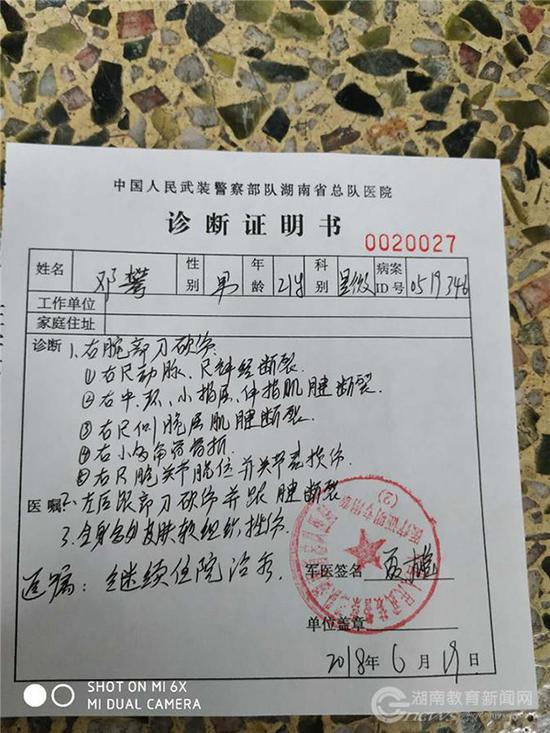 中国人民武装警察部队湖南省总队医院
诊断证明书
0020027
姓名 邓攀 性别 男 年龄 21岁 科别 显微 病案ID号 0519346
工作单位
家庭住址
诊断 1.右腕部刀砍伤
①右尺动脉、尺神经断裂
②右中、环、小指屈、伸指肌腱断裂
③右尺侧腕屈肌腱断裂
④右小多角骨骨折
⑤右尺腕关节脱位并关节囊损伤
2.左后跟部刀砍伤并跟腱断裂
医嘱
3.全身多处皮肤软组织挫伤
医嘱：继续住院治疗.
军医签名
单位盖章
2018年6月19日
医疗证明专用章
(2)
SHOT ON MI 6X
MI DUAL CAMERA
湖南教育新闻网
news